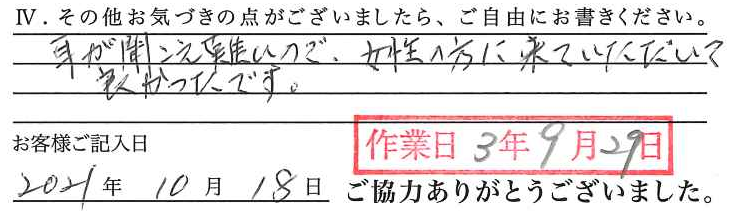 Ⅳ．その他お気づきの点がございましたら、ご自由にお書きください。
耳が聞こえ難いので、女性の方に来ていただいて
良かったです。
お客様ご記入日
作業日 3年9月29日
2021年 10月 18日 ご協力ありがとうございました。